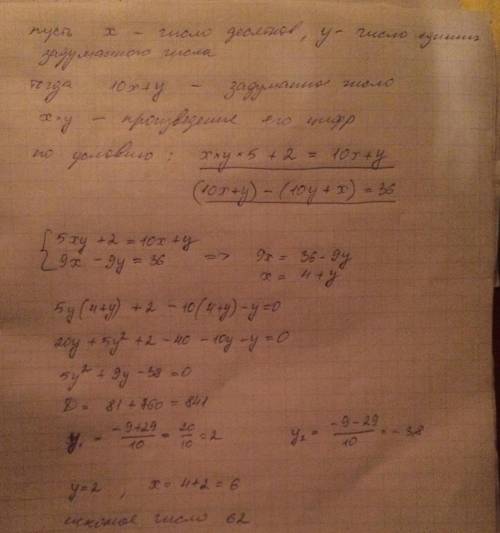 пусть x – число десятков, y – число единиц
задуманного числа
тогда 10x+y – задуманное число
x×y – произведение его цифр
по условию: x×y×5 + 2 = 10x+y
(10x+y) – (10y+x) = 36
{ 5xy + 2 = 10x + y
9x - 9y = 36 => 9x = 36 - 9y
x = 4 + y
5y(4+y) + 2 - 10(4+y) - y = 0
20y + 5y² + 2 - 40 - 10y - y = 0
5y² + 9y - 38 = 0
D = 81 + 760 = 841
y₁ = (-9+29)/10 = 20/10 = 2 y₂ = (-9-29)/10 = -3,8
y = 2 , x = 4+2 = 6
искомое число 62